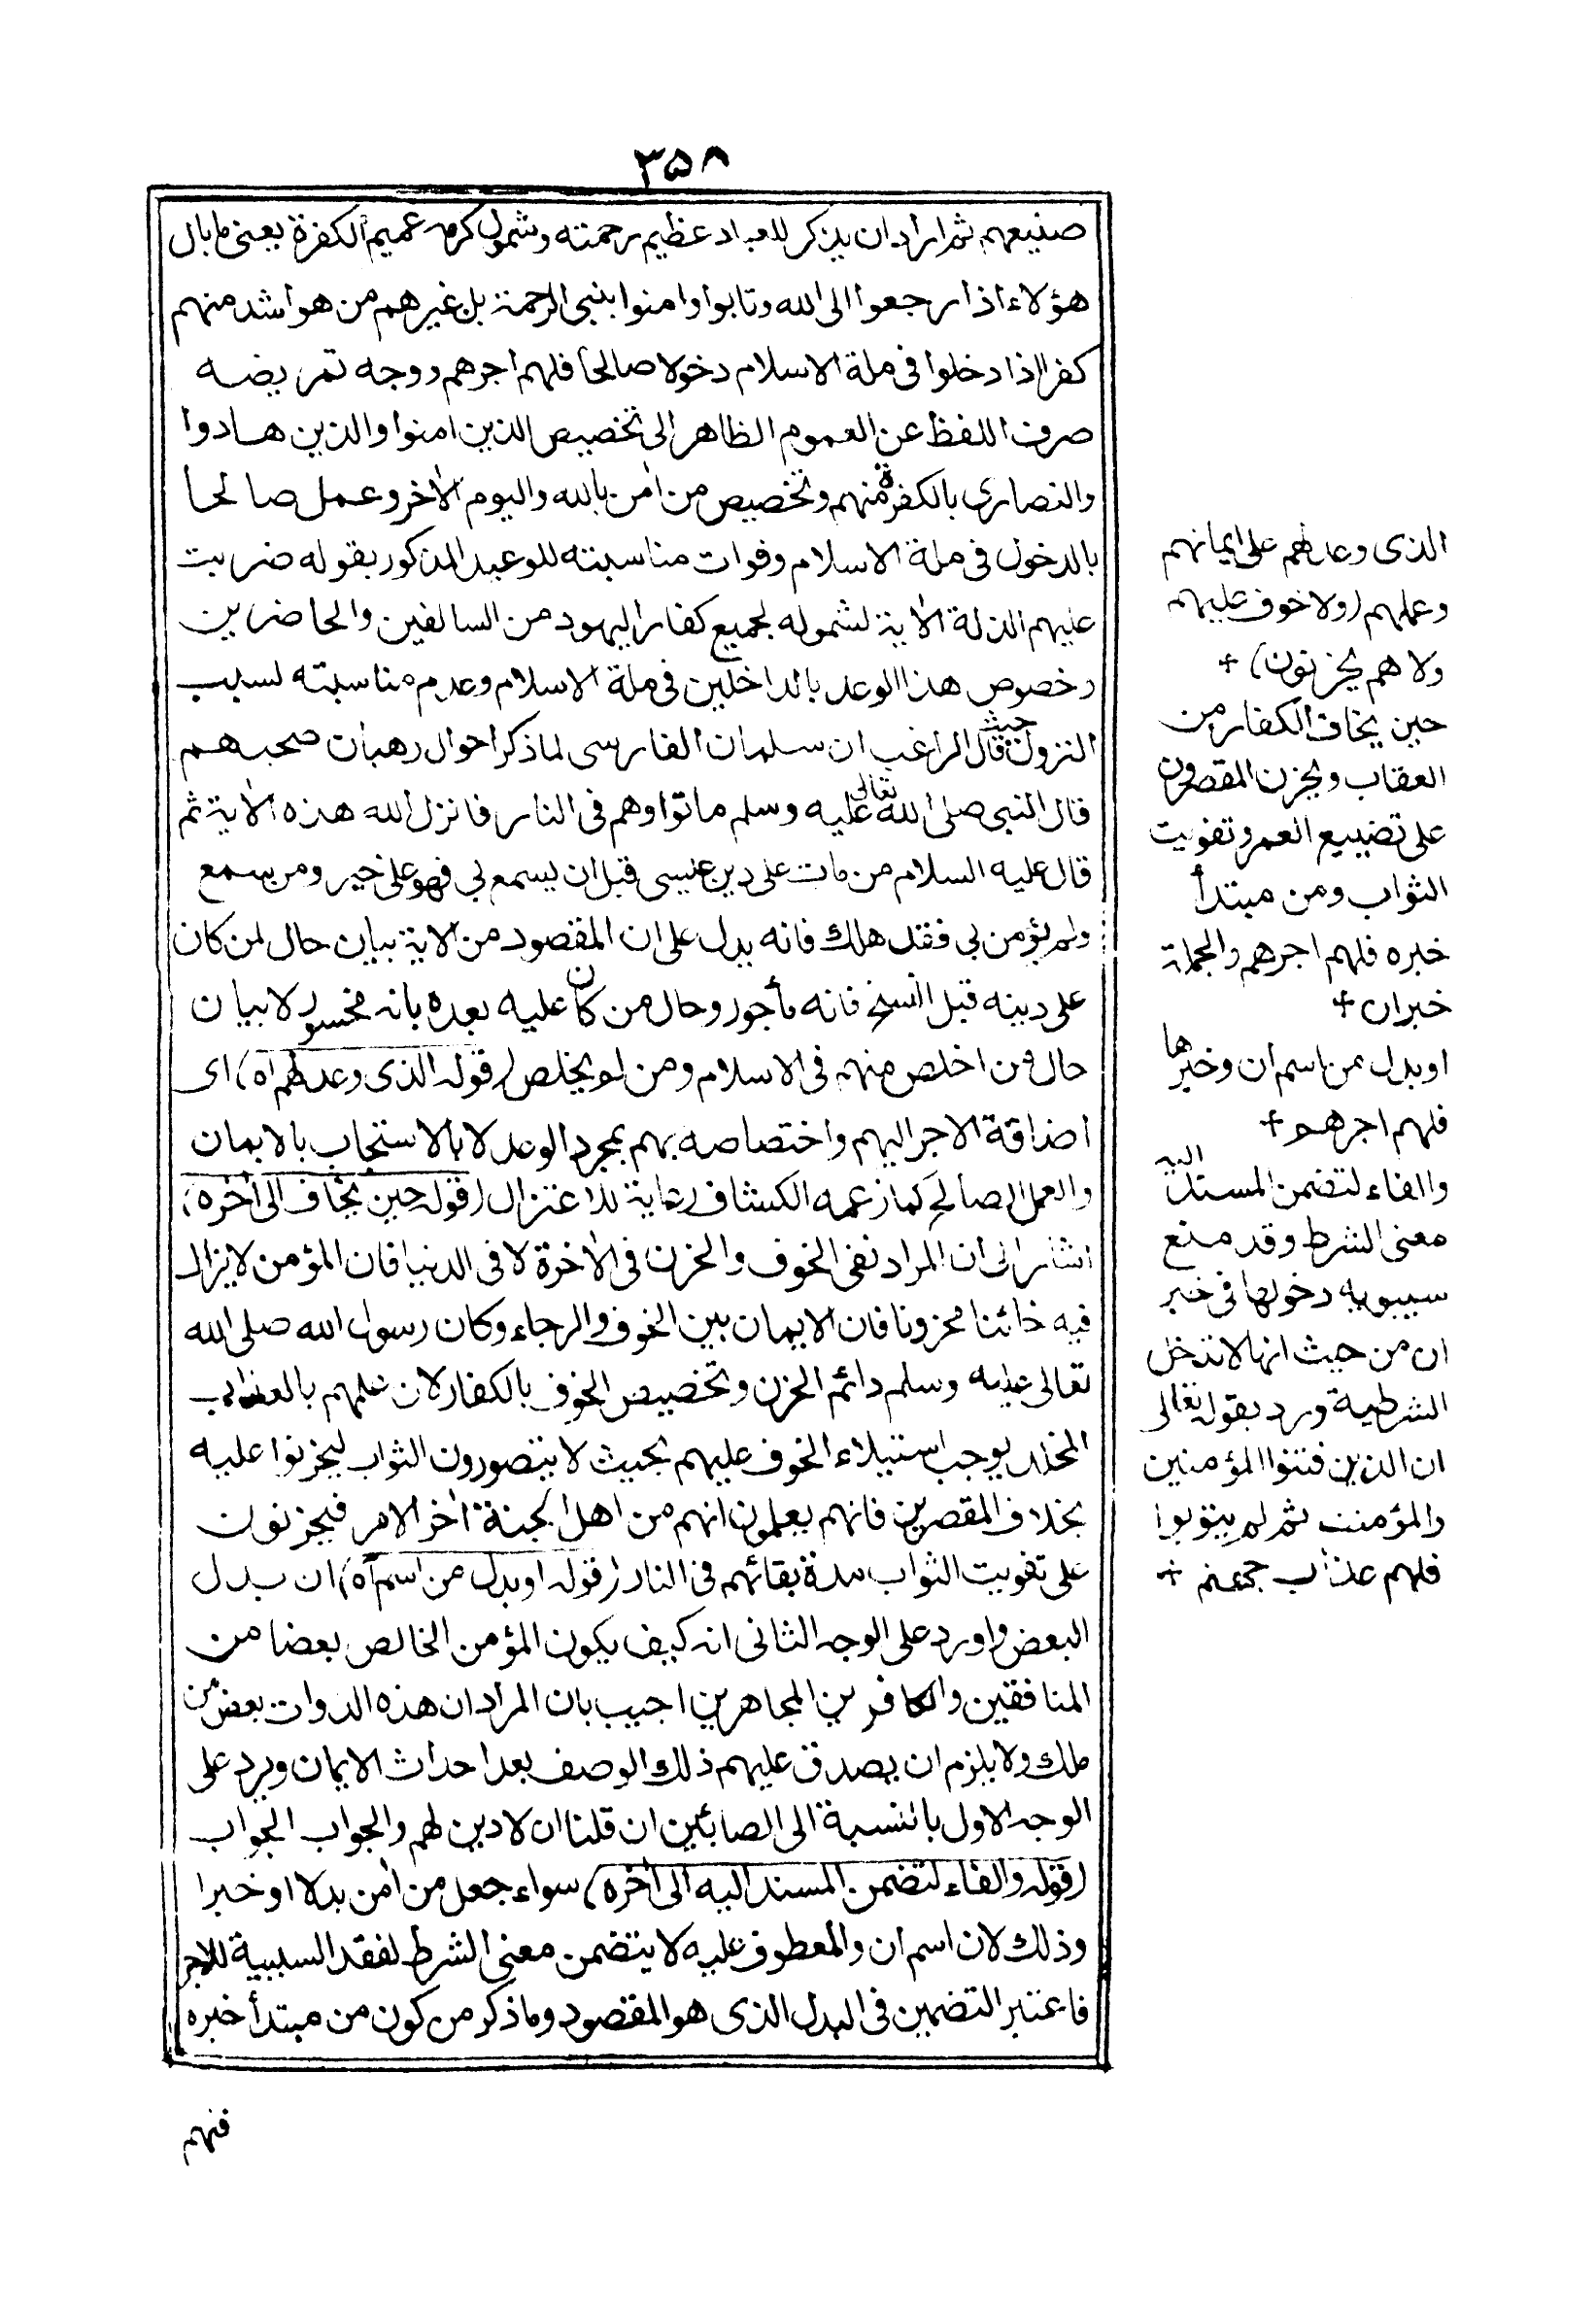 ٣٥٨
صنيعهم ثم اراد ان يذكر للعباد عظيم رحمته وشمول كرمه عميم الكفرة يعنى ما بال
هؤلاء اذا رجعوا الى الله وتابوا وامنوا بنبى الرحمة بل غيرهم من هو اشد منهم
كفرا اذا دخلوا فى ملة الاسلام دخولا صالحا فلهم اجرهم ووجه تمريضه
صرف اللفظ عن العموم الظاهر الى تخصيص الذين امنوا والذين هادوا
والنصارى بالكفرة منهم وتخصيص من اٰمن بالله واليوم الاٰخر وعمل صالحا
بالدخول فى ملة الاسلام وفوات مناسبته للوعيد المذكور بقوله ضربت
عليهم الذلة الاٰية لشموله لجميع كفار اليهود من السالفين والحاضرين
وخصوص هذا الوعد بالداخلين فى ملة الاسلام وعدم مناسبته لسبب
النزول حيث قال الراغب ان سلمان الفارسى لما ذكر احوال رهبان صحبهم
قال النبى صلى الله تعالى عليه وسلم ماتوا وهم فى النار فانزل الله هذه الاٰية ثم
قال عليه السلام من مات على دين عيسى قبل ان يسمع بى فهو على خير ومن يسمع
ولم يؤمن بى فقد هلك فانه يدل على ان المقصود من الاٰية بيان حال لمن كان
على دينه قبل النسخ فانه مأجور وحال من كان عليه بعده بانه مخسور لا بيان
حال من اخلص منهم فى الاسلام ومن لم يخلص (قوله الذى وعد لهم اه) اى
اضافة الاجر اليهم واختصاصه بهم بمجرد الوعد لا بالاستجاب بالايمان
والعمل الصالح كما زعمه الكشاف رعاية للاعتزال (قوله حين يخاف الى اٰخره)
اشار الى ان المراد نفى الخوف والحزن فى الاٰخرة لا فى الدنيا فان المؤمن لا يزال
فيه خائفا محزونا فان الايمان بين الخوف والرجاء وكان رسول الله صلى الله
تعالى عليه وسلم دائم الحزن وتخصيص الخوف بالكفار لان علمهم بالعذاب
المخلد يوجب استيلاء الخوف عليهم بحيث لا يتصورون الثواب ليحزنوا عليه
بخلاف المقصرين فانهم يعلمون انهم من اهل الجنة اٰخر الامر فيحزنون
على تفويت الثواب مدة بقائهم فى النار (قوله او بدل من اسم اه) ان بدل
البعض واورد على الوجه الثانى انه كيف يكون المؤمن الخالص بعضا من
المنافقين والكافرين المجاهرين اجيب بان المراد ان هذه الذوات بعض من
تلك ولا يلزم ان يصدق عليهم ذلك الوصف بعد احداث الايمان ويرد على
الوجه الاول بالنسبة الى الصابئين ان قلنا ان لا دين لهم والجواب الجواب
(قوله والفاء لتضمن المسند اليه الى اٰخره) سواء جعل من اٰمن بدلا او خبرا
وذلك لان اسم ان والمعطوف عليه لا يتضمن معنى الشرط لفقد السببية للاجر
فاعتبر التضمين فى البدل الذى هو المقصود وما ذكر من كون من مبتدأ خبره
فلهم
الذى وعد لهم على ايمانهم
وعملهم (ولا خوف عليهم
ولا هم يحزنون) +
حين يخاف الكفار من
العقاب ويحزن المقصرون
على تضييع العمر وتفويت
الثواب ومن مبتدأ
خبره فلهم اجرهم والجملة
خبر ان +
او بدل من اسم ان وخبرها
فلهم اجرهم +
والفاء لتضمن المسند اليه
معنى الشرط وقد منع
سيبويه دخولها فى خبر
ان من حيث انها لا تدخل
الشرطية ورد بقوله تعالى
ان الذين فتنوا المؤمنين
والمؤمنت ثم لم يتوبوا
فلهم عذاب جهنم +